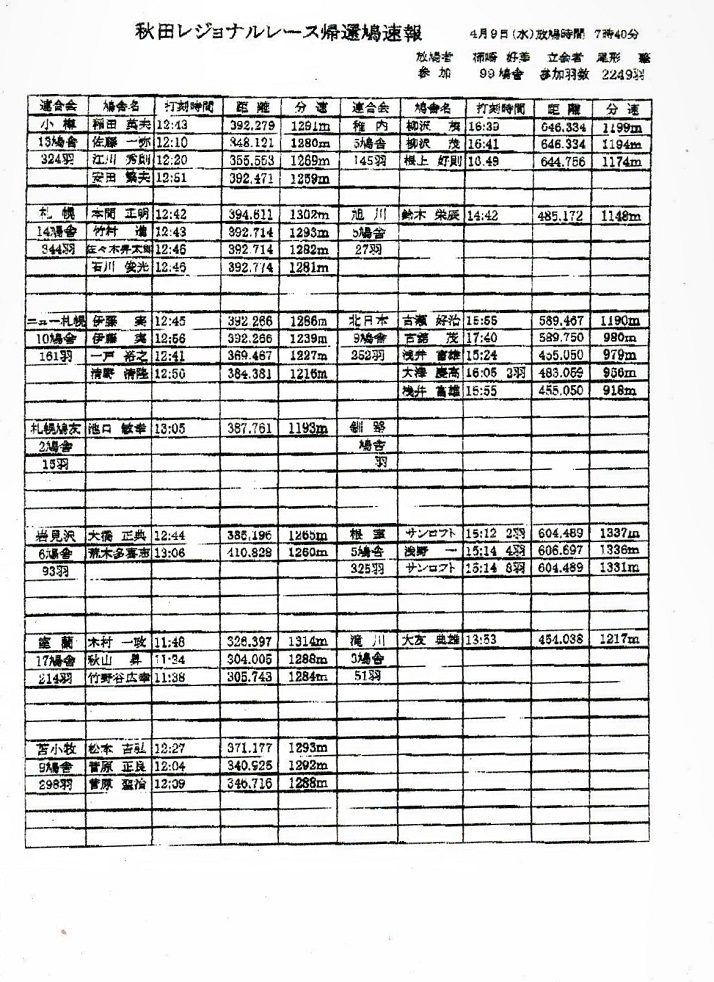 秋田レジョナルレース帰還鳩速報 4月9日(水)放鳩時間 7時40分
放鳩者 柿崎 好美 立会者 尾形
参加 99鳩舎 参加羽数 2249羽
連合会 鳩舎名 打刻時間 距離 分速 連合会 鳩舎名 打刻時間 距離 分速
小樽 稲田 英夫 12:43 392.279 1291m 稚内 柳沢 茂 16:39 646.334 1199m
13鳩舎 佐藤 一弥 12:10 348.121 1280m 5鳩舎 柳沢 茂 16:41 646.334 1194m
324羽 江川 秀則 12:20 355.553 1269m 145羽 根上 好則 16:49 644.756 1174m
安田 繁夫 12:51 392.471 1259m
札幌 本間 正明 12:42 394.611 1302m 旭川 鈴木 栄辰 14:42 485.172 1148m
14鳩舎 竹村 12:43 392.714 1293m 5鳩舎
344羽 佐々木昇太郎 12:46 392.714 1282m 27羽
石川 俊光 12:46 392.774 1281m
ニュー札幌 伊藤 実 12:45 392.266 1286m 北日本 古瀬 好治 15:55 589.467 1190m
10鳩舎 伊藤 実 12:56 392.266 1239m 9鳩舎 古舘 茂 17:40 589.750 980m
161羽 一戸 裕之 12:41 369.467 1227m 252羽 浅井 富雄 15:24 455.050 979m
清野 清隆 12:56 384.381 1216m 大澤 慶高 16:05 2羽 483.059 956m
浅井 富雄 15:55 455.050 918m
札幌鳩友 池口 敏幸 13:05 387.761 1193m 釧路
2鳩舎 鳩舎
15羽 羽
岩見沢 大橋 正典 12:44 385.196 1265m 根室 サンロフト 15:12 2羽 604.489 1337m
6鳩舎 荒木多喜志 13:06 410.828 1260m 5鳩舎 浅野 一 15:14 4羽 606.697 1336m
93羽 325羽 サンロフト 15:14 8羽 604.489 1331m
室蘭 木村 一政 11:48 326.397 1314m 滝川 大友 典雄 13:53 454.038 1217m
17鳩舎 秋山 昇 11:34 304.005 1288m 3鳩舎
214羽 竹野谷広幸 11:38 305.743 1284m 51羽
苫小牧 松本 吉弘 12:27 371.177 1293m
9鳩舎 菅原 正良 12:04 340.925 1292m
298羽 菅原 聖治 12:09 346.716 1288m